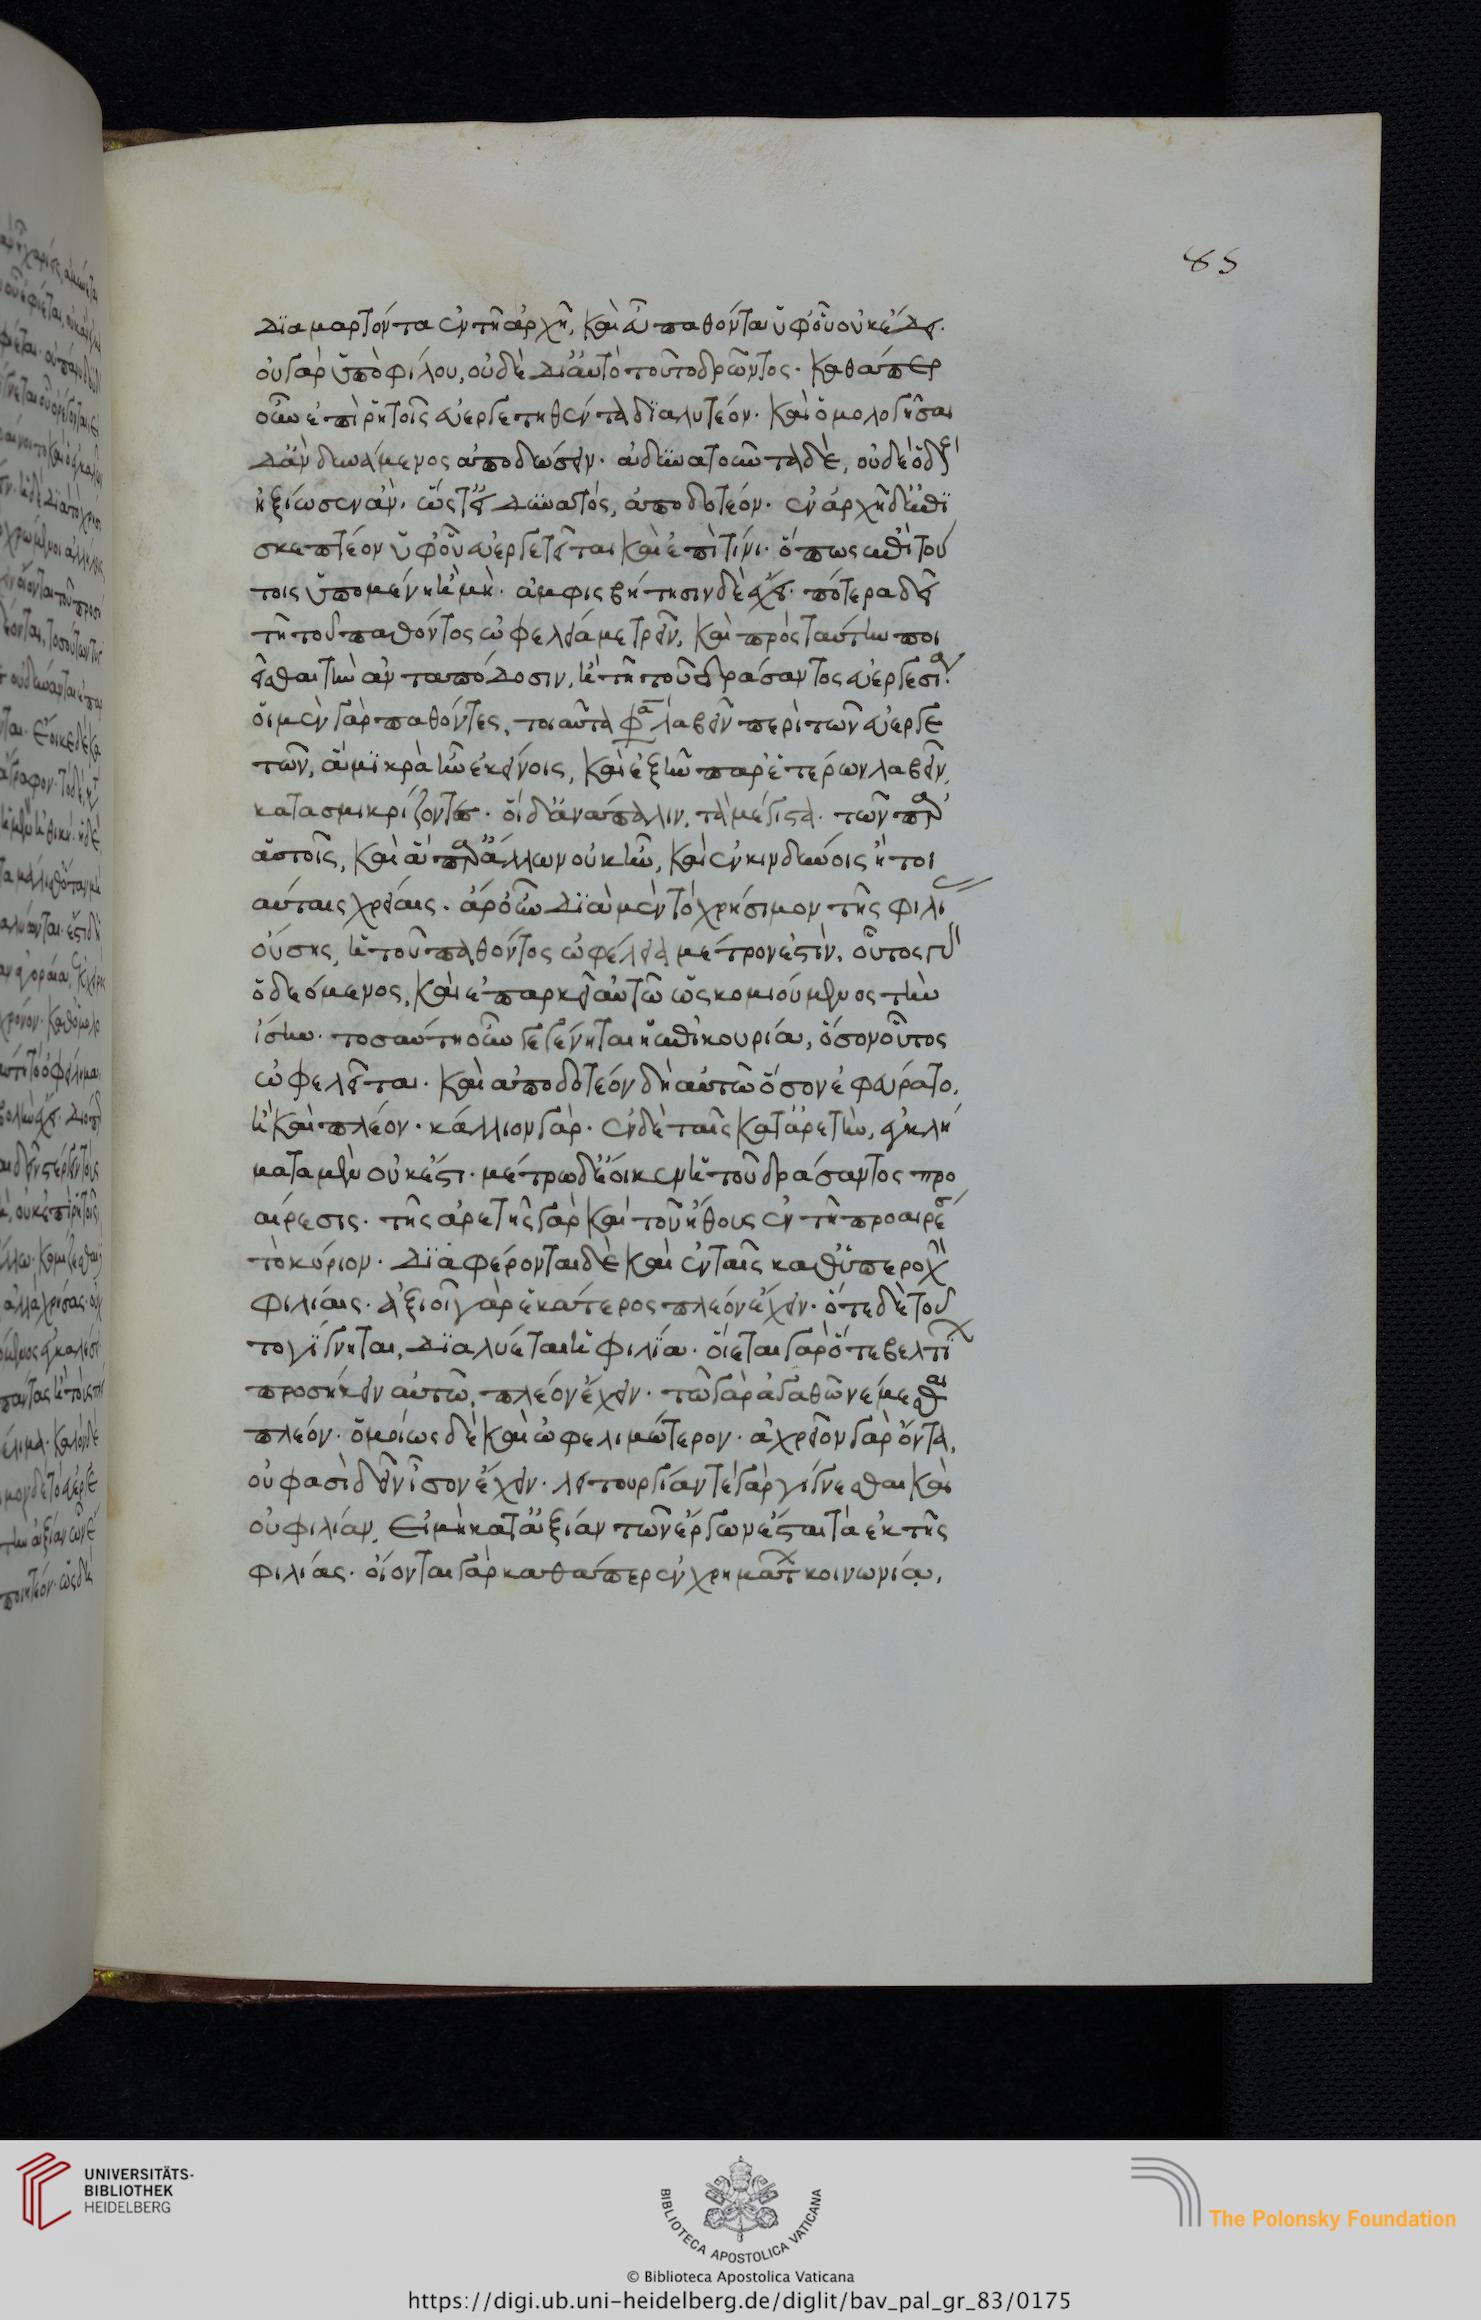 85
διαμαρτόντα ἐν τῆ ἀρχῆ, καὶ εὖ παθόνται ὑφ' οὗ οὐκ ἔδει.
οὐ γὰρ ὑπὸ φίλου, οὐδὲ δι' αὐτὸ τοῦτο δρῶντος. καθάπερ
οὖν ἐπὶ ῥητοῖς εὐεργετηθέντα διαλυτέον. καὶ ὁμολογῆσαι
δ' ἂν δυνάμενος ἀποδώσειν. ἀδυνατοῦντα δὲ, οὐδ' ὁ διδοὺς
ἠξίωσεν ἄν. ὥστ' εἰ δυνατὸς, ἀποδοτέον. ἐν ἀρχῆ δ' ἐπι
σκεπτέον ὑφ' οὗ εὐεργετεῖται καὶ ἐπὶ τίνι. ὅπως ἐπὶ τού
τοις ὑπομένη ἢ μή. ἀμφισβήτησιν δὲ ἔχει. πότερα δεῖ
τῆ τοῦ παθόντος ὠφελεία μετρεῖν, καὶ πρὸς ταύτην ποι
εῖσθαι τὴν ἀνταπόδοσιν, ἢ τῆ τοῦ δράσαντος εὐεργεσία.
οἱ μὲν γὰρ παθόντες, τοιαῦτα φασὶ λαβεῖν περὶ τῶν εὐεργε
τῶν, ἃ μικρὰ ἦν ἐκείνοις, καὶ ἐξῆν παρ' ἑτέρων λαβεῖν,
κατασμικρίζοντες. οἱ δ' ἀνάπαλιν, τὰ μέγιστα τῶν παρ'
αὐτοῖς, καὶ ἃ παρ' ἄλλων οὐκ ἦν, καὶ ἐν κινδύνοις ἢ τοι
αύταις χρείαις. ἆρ' οὖν διὰ μὲν τὸ χρήσιμον τῆς φιλί
οὔσης, ἡ τοῦ παθόντος ὠφέλεια μέτρον ἐστίν. οὗτος γὰρ
ὁ δεόμενος, καὶ ἐπαρκεῖ αὐτῶ ὡς κομιούμενος τὴν
ἴσην. τοσαύτη οὖν γεγένηται ἡ ἐπικουρία, ὅσον οὗτος
ὠφελεῖται. καὶ ἀποδοτέον δὴ αὐτῶ ὅσον ἐπηύρατο,
ἢ καὶ πλέον. κάλλιον γάρ. ἐν δὲ ταῖς κατ' ἀρετὴν, ἐγκλή
ματα μὲν οὐκ ἔστι. μέτρω δ' ἔοικεν ἡ τοῦ δράσαντος προ
αίρεσις. τῆς ἀρετῆς γὰρ καὶ τοῦ ἤθους ἐν τῆ προαιρέσ
τὸ κύριον. διαφέρονται δὲ καὶ ἐν ταῖς καθ' ὑπεροχ
φιλίαις. ἀξιοῖ γὰρ ἑκάτερος πλέον ἔχειν. ὅτε δὲ τοῦ
το γίγνηται, διαλύεται ἡ φιλία. οἴεται γὰρ ὅ τε βελτί
προσήκειν αὐτῶ, πλέον ἔχειν. τῶ γὰρ ἀγαθῶ νέμεσθαι
πλέον. ὁμοίως δὲ καὶ ὠφελιμώτερον. ἀχρεῖον γὰρ ὄντα,
οὔ φασι δεῖν ἴσον ἔχειν. λειτουργίαν τὲ γὰρ γίγνεσθαι καὶ
οὐ φιλίαν, εἰ μὴ κατ' ἀξίαν τῶν ἔργων ἔσται τὰ ἐκ τῆς
φιλίας. οἴονται γὰρ καθάπερ ἐν χρημάτ κοινωνία,
UNIVERSITÄTS-
BIBLIOTHEK
HEIDELBERG
BIBLIOTECA APOSTOLICA VATICANA
The Polonsky Foundation
© Biblioteca Apostolica Vaticana
https://digi.ub.uni-heidelberg.de/diglit/bav_pal_gr_83/0175